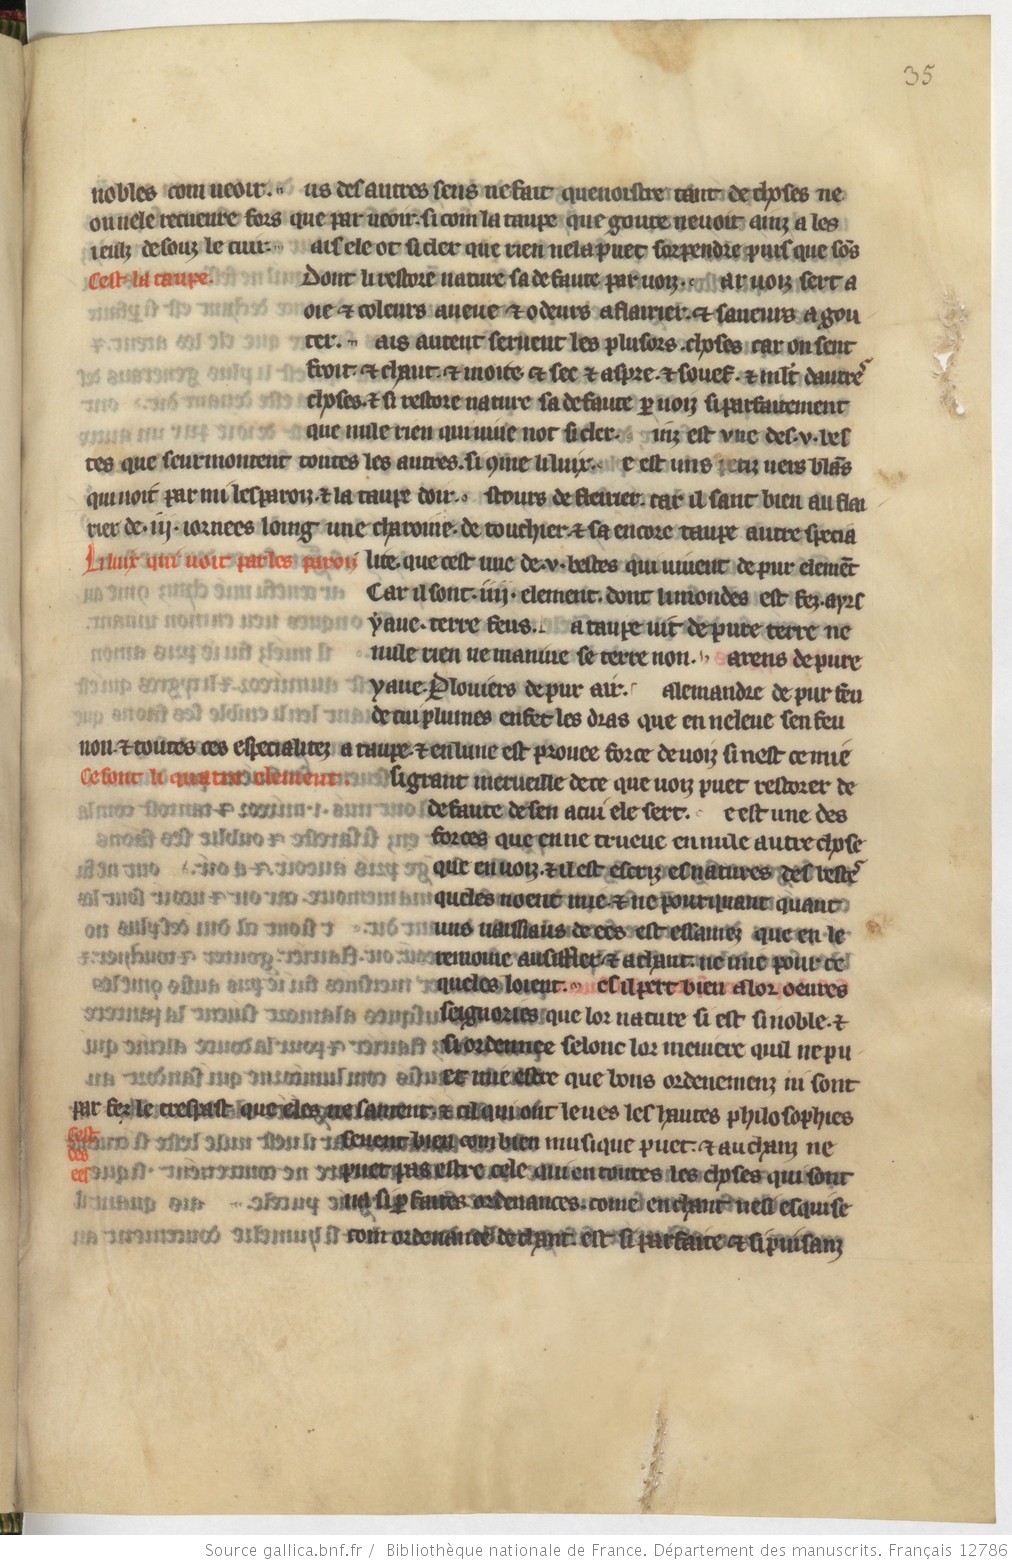 35
nobles com ueoir. us des autres sens ne fait quenoistre tant de choses ne
ou uele recueure fors que par ueoir. si com la taupe que goute ne uoit ainz a les
ieulz desouz le cuir. ais ele ot si cler que rien ne la puet sorprendre puis que sõs
Cest la taupe. Dont li restore nature sa defaute par uoiz. ar uoiz sert a
oie & coleurs a ueue & odeurs a flairier. & saueurs a gou
ter. ais autent seruent les plusors choses car on sent
froit. & chaut. & moite. & sec & aspre. & souef. & mlt dautres
choses. & si restore nature sa defaute p uoiz si parfaitement
que nule rien qui uiue not si cler. nz est vne des .v. bes
tes que seurmontent toutes les autres. si 9me li luix. e est uns uers blãs
qui uoit par mi les paroiz. & la taupe doir. stours de flerier. car il sant bien au flai
rier de .iij. iornees loing une charoine. de touchier. & sa encore taupe autre specia
Li luix qui uoit par les paroiz lite. que cest une de .v. bestes qui uiuent de pur elemẽt
Car il sont .iiij. element. dont li mondes est fez. ayrs
yaue. terre feus. a taupe uit de pure terre ne
nule rien ne maniue se terre non. arens de pure
yaue. Plouiers de pur air. alemandre de pur feu
de cui plumes en fet les dras que en ne leue sen feu
non. & toutes ces especialitez a taupe. & en lune est prouee force de uoiz si nest ce mie
Ce sont li quatre element. si grant merueille de ce que uoiz puet restorer de
defaute de sen a cui ele sert. e est une des
forces que en ne trueue en nule autre chose
que en uoiz. & il est escriz es natures des bestes
queles noent mie. & ne pourquant quant
uns uaissiaus de ees est essamez que en le
remoine au siffler & a chant. ne mie pour ce
queles loient. es il pert bien a lor oeures
seignories que lor nature si est si noble. &
si ordenee selonc lor meniere quil ne pu
et mie estre que bons ordenemenz ni sont
par fez le trespast que eles ne sainent. & cil qui ont leues les hautes philosophies
Cest des ees seuent bien com bien musique puet. & au chanz ne
puet pas estre cele qui en toutes les choses qui sont
na si p faites ordenances. come en chant nesi esquise
com ordenance de chant. est si parfaite & si puisanz
Source gallica.bnf.fr / Bibliothèque nationale de France. Département des manuscrits. Français 12786